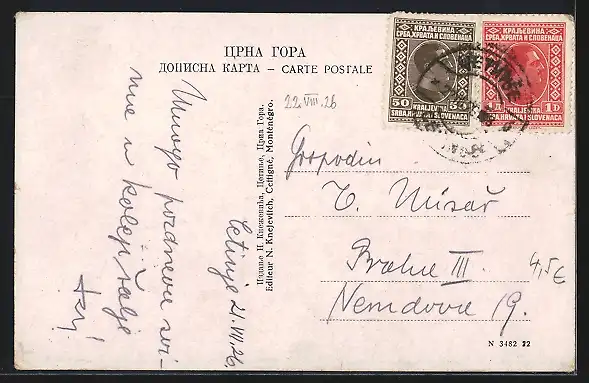 ЦРНА ГОРА
ДОПИСНА КАРТА – CARTE POSTALE
КРАЉЕВИНА
СРБА, ХРВАТА И СЛОВЕНАЦА
50 50
KRALJEVINA
SRBA, HRVATA I SLOVENACA
КРАЉЕВИНА
СРБА, ХРВАТА И СЛОВЕНАЦА
1 Д 1 D
KRALJEVINA
SRBA, HRVATA I SLOVENACA
22.VIII.26
Mnogo pozdrava svi-
ma u
Cetinje 21.VIII.26
Издање Н. Кнежевића, Цетиње, Црна Гора.
Editeur N. Knejevitch, Cettigné, Monténégro.
Gospodin
Praha III.
Nemdova 19.
4,5€
N 3482 22